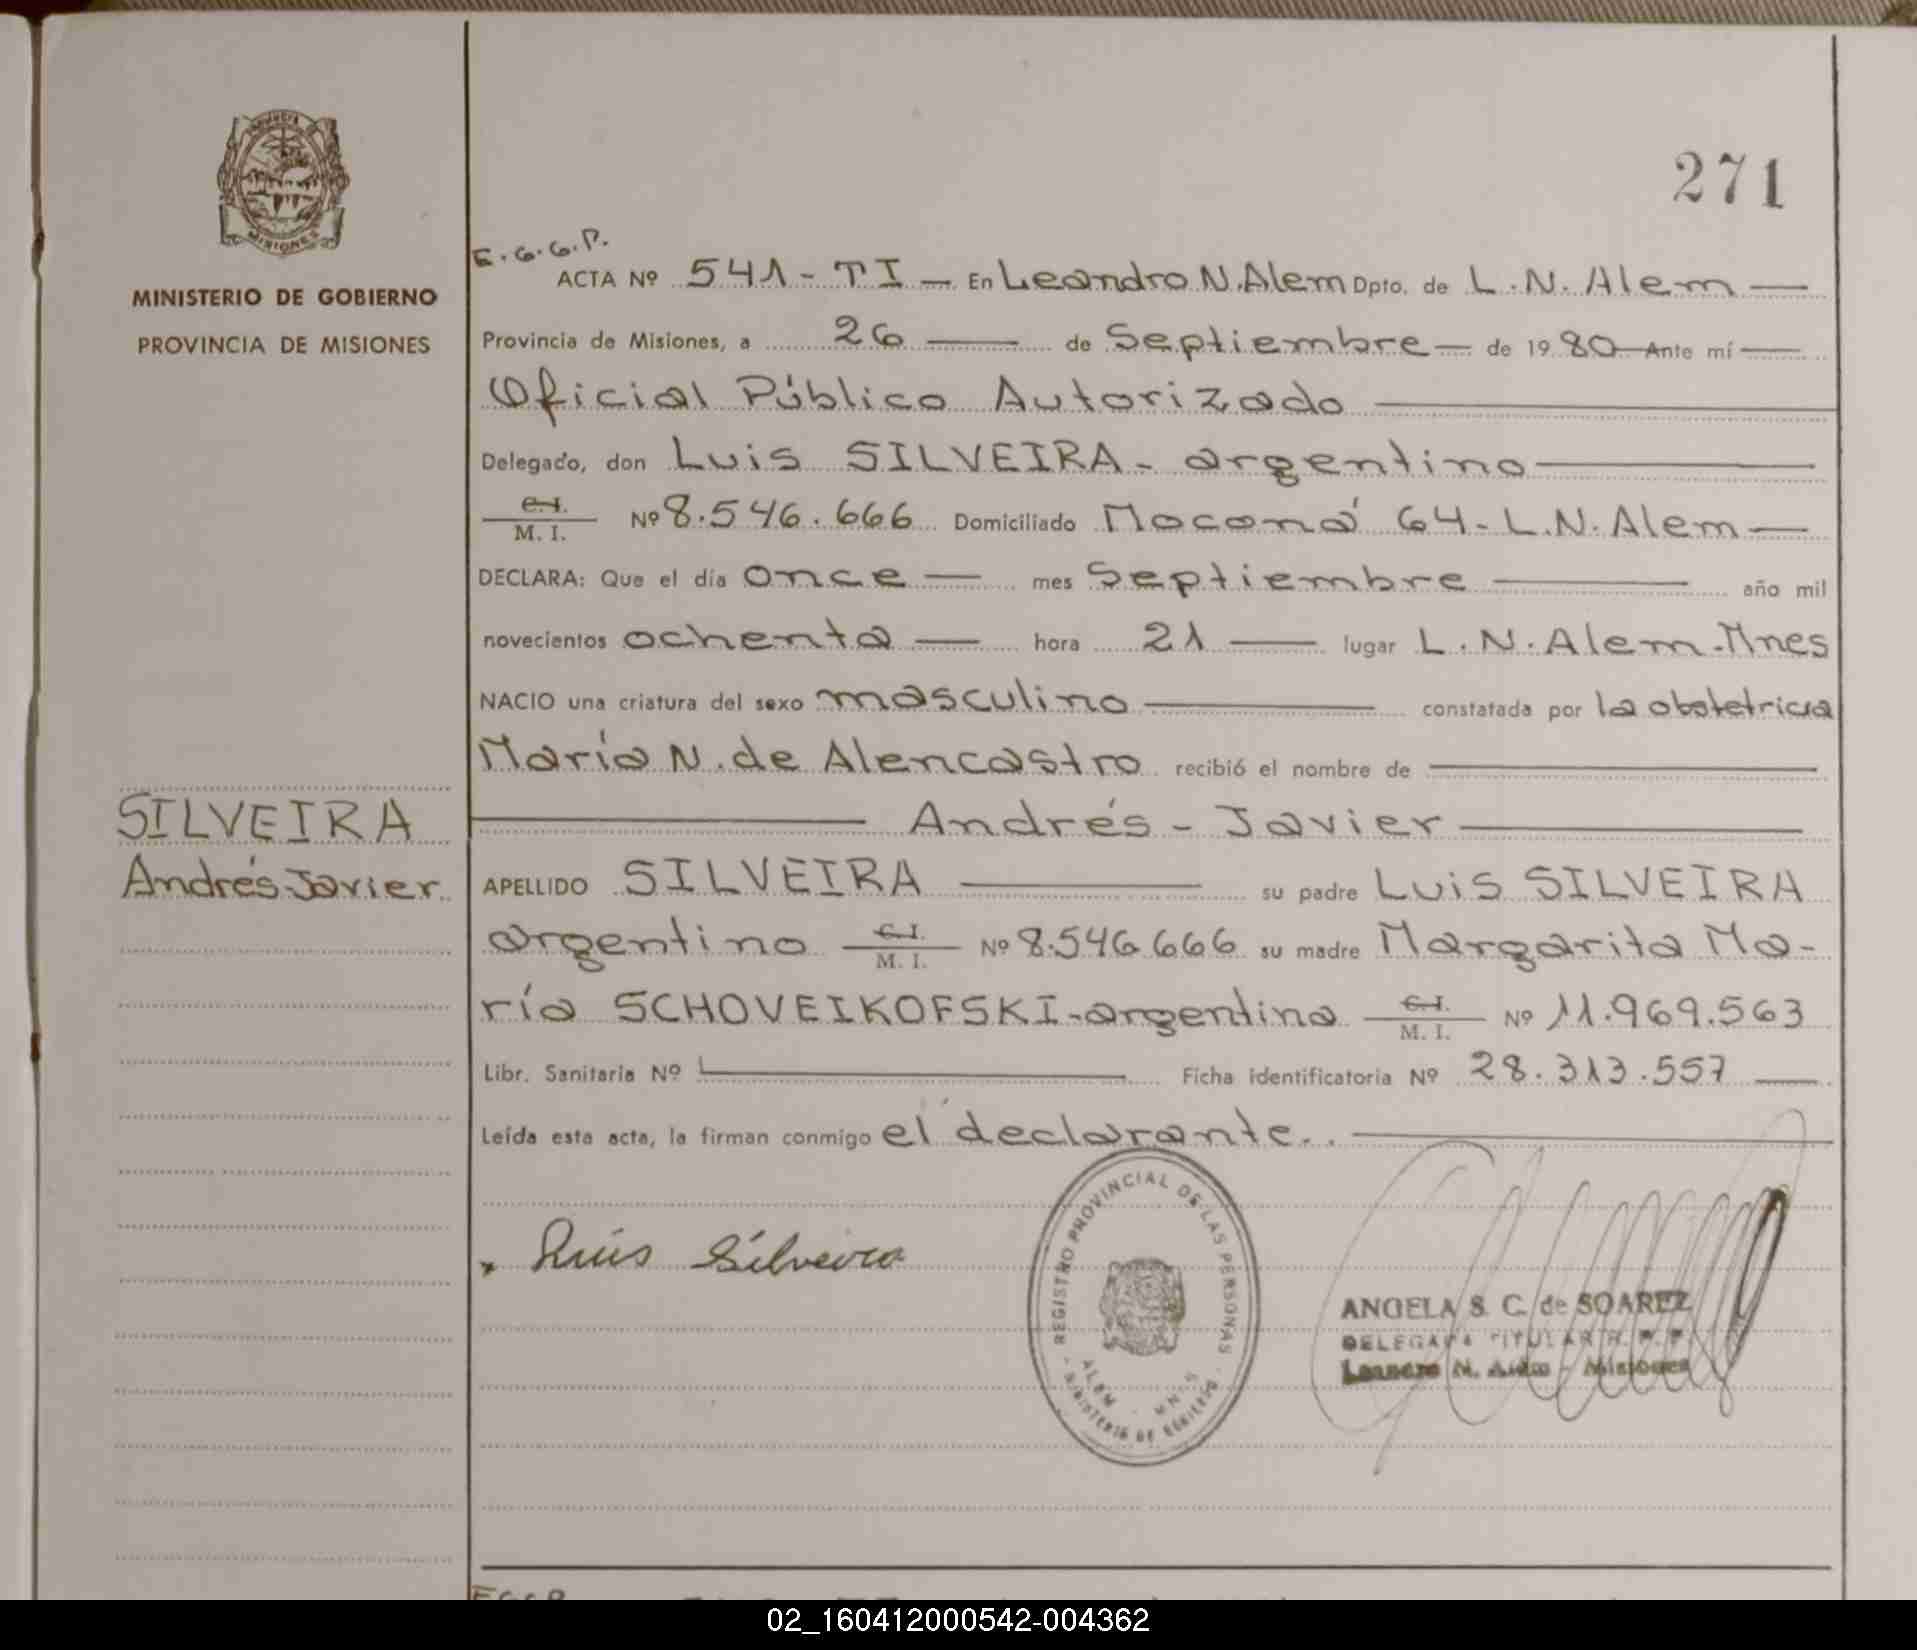 271
MINISTERIO DE GOBIERNO
PROVINCIA DE MISIONES
SILVEIRA
Andrés Javier
E.G.G.P.
ACTA Nº 541-TI — En Leandro N. Alem Dpto. de L.N. Alem —
Provincia de Misiones, a 26 — de Septiembre — de 1980 — Ante mí —
Oficial Público Autorizado —
Delegado, don Luis SILVEIRA - argentino —
C.I. / M. I. Nº 8.546.666 Domiciliado Moconá 64 - L.N. Alem —
DECLARA: Que el día once — mes Septiembre — año mil
novecientos ochenta — hora 21 — lugar L.N. Alem - Mnes
NACIO una criatura del sexo masculino — constatada por la obstetricia
María N. de Alencastro recibió el nombre de —
— Andrés - Javier —
APELLIDO SILVEIRA — su padre Luis SILVEIRA
argentino C.I. / M. I. Nº 8.546.666 su madre Margarita Ma-
ría SCHOVEIKOFSKI - argentina C.I. / M. I. Nº 11.969.563
Libr. Sanitaria Nº — Ficha identificatoria Nº 28.313.557 —
Leída esta acta, la firman conmigo el declarante.. —
Luis Silveira
REGISTRO PROVINCIAL DE LAS PERSONAS
ALEM - MNES
MINISTERIO DE GOBIERNO
ANGELA S. C. de SOAREZ
DELEGADA TITULAR R. P. P.
Leandro N. Alem - Misiones
02_160412000542-004362